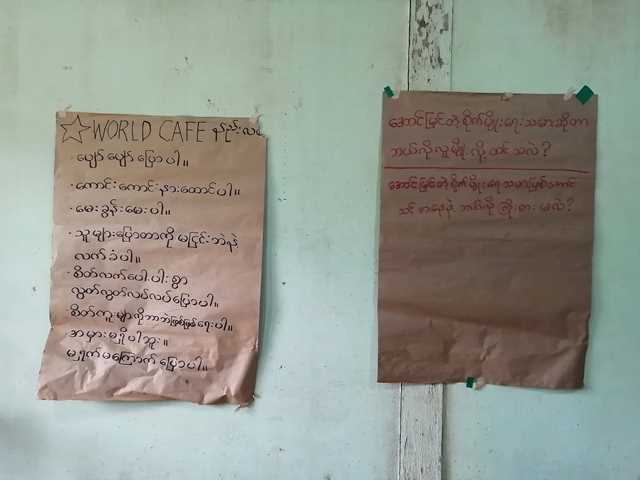 WORLD CAFE နည်းလမ်း
• ပျော်ပျော်ပြောပါ။
• ကောင်းကောင်းနားထောင်ပါ။
• မေးခွန်းမေးပါ။
• သူများပြောတာကို မငြင်းဘဲနဲ့
လက်ခံပါ။
• စိတ်လက်ပေါ့ပါးစွာ
လွတ်လွတ်လပ်လပ်ပြောပါ။
• စိတ်ကူးမျာကိုဘာဘဲဖြစ်ဖြစ်ရေးပါ။
အမှားမရှိပါဘူး။
မရှက်မကြောက်ပြောပါ။
အောင်မြင်တဲ့စိုက်ပျိုးရေးသမားဆိုတာ
ဘယ်လိုလူမျိုးလို့ထင်သလဲ?
အောင်မြင်တဲ့စိုက်ပျိုးရေးသမားဖြစ်အောင်
ဘယ်လိုကြိုးစားမလဲ?